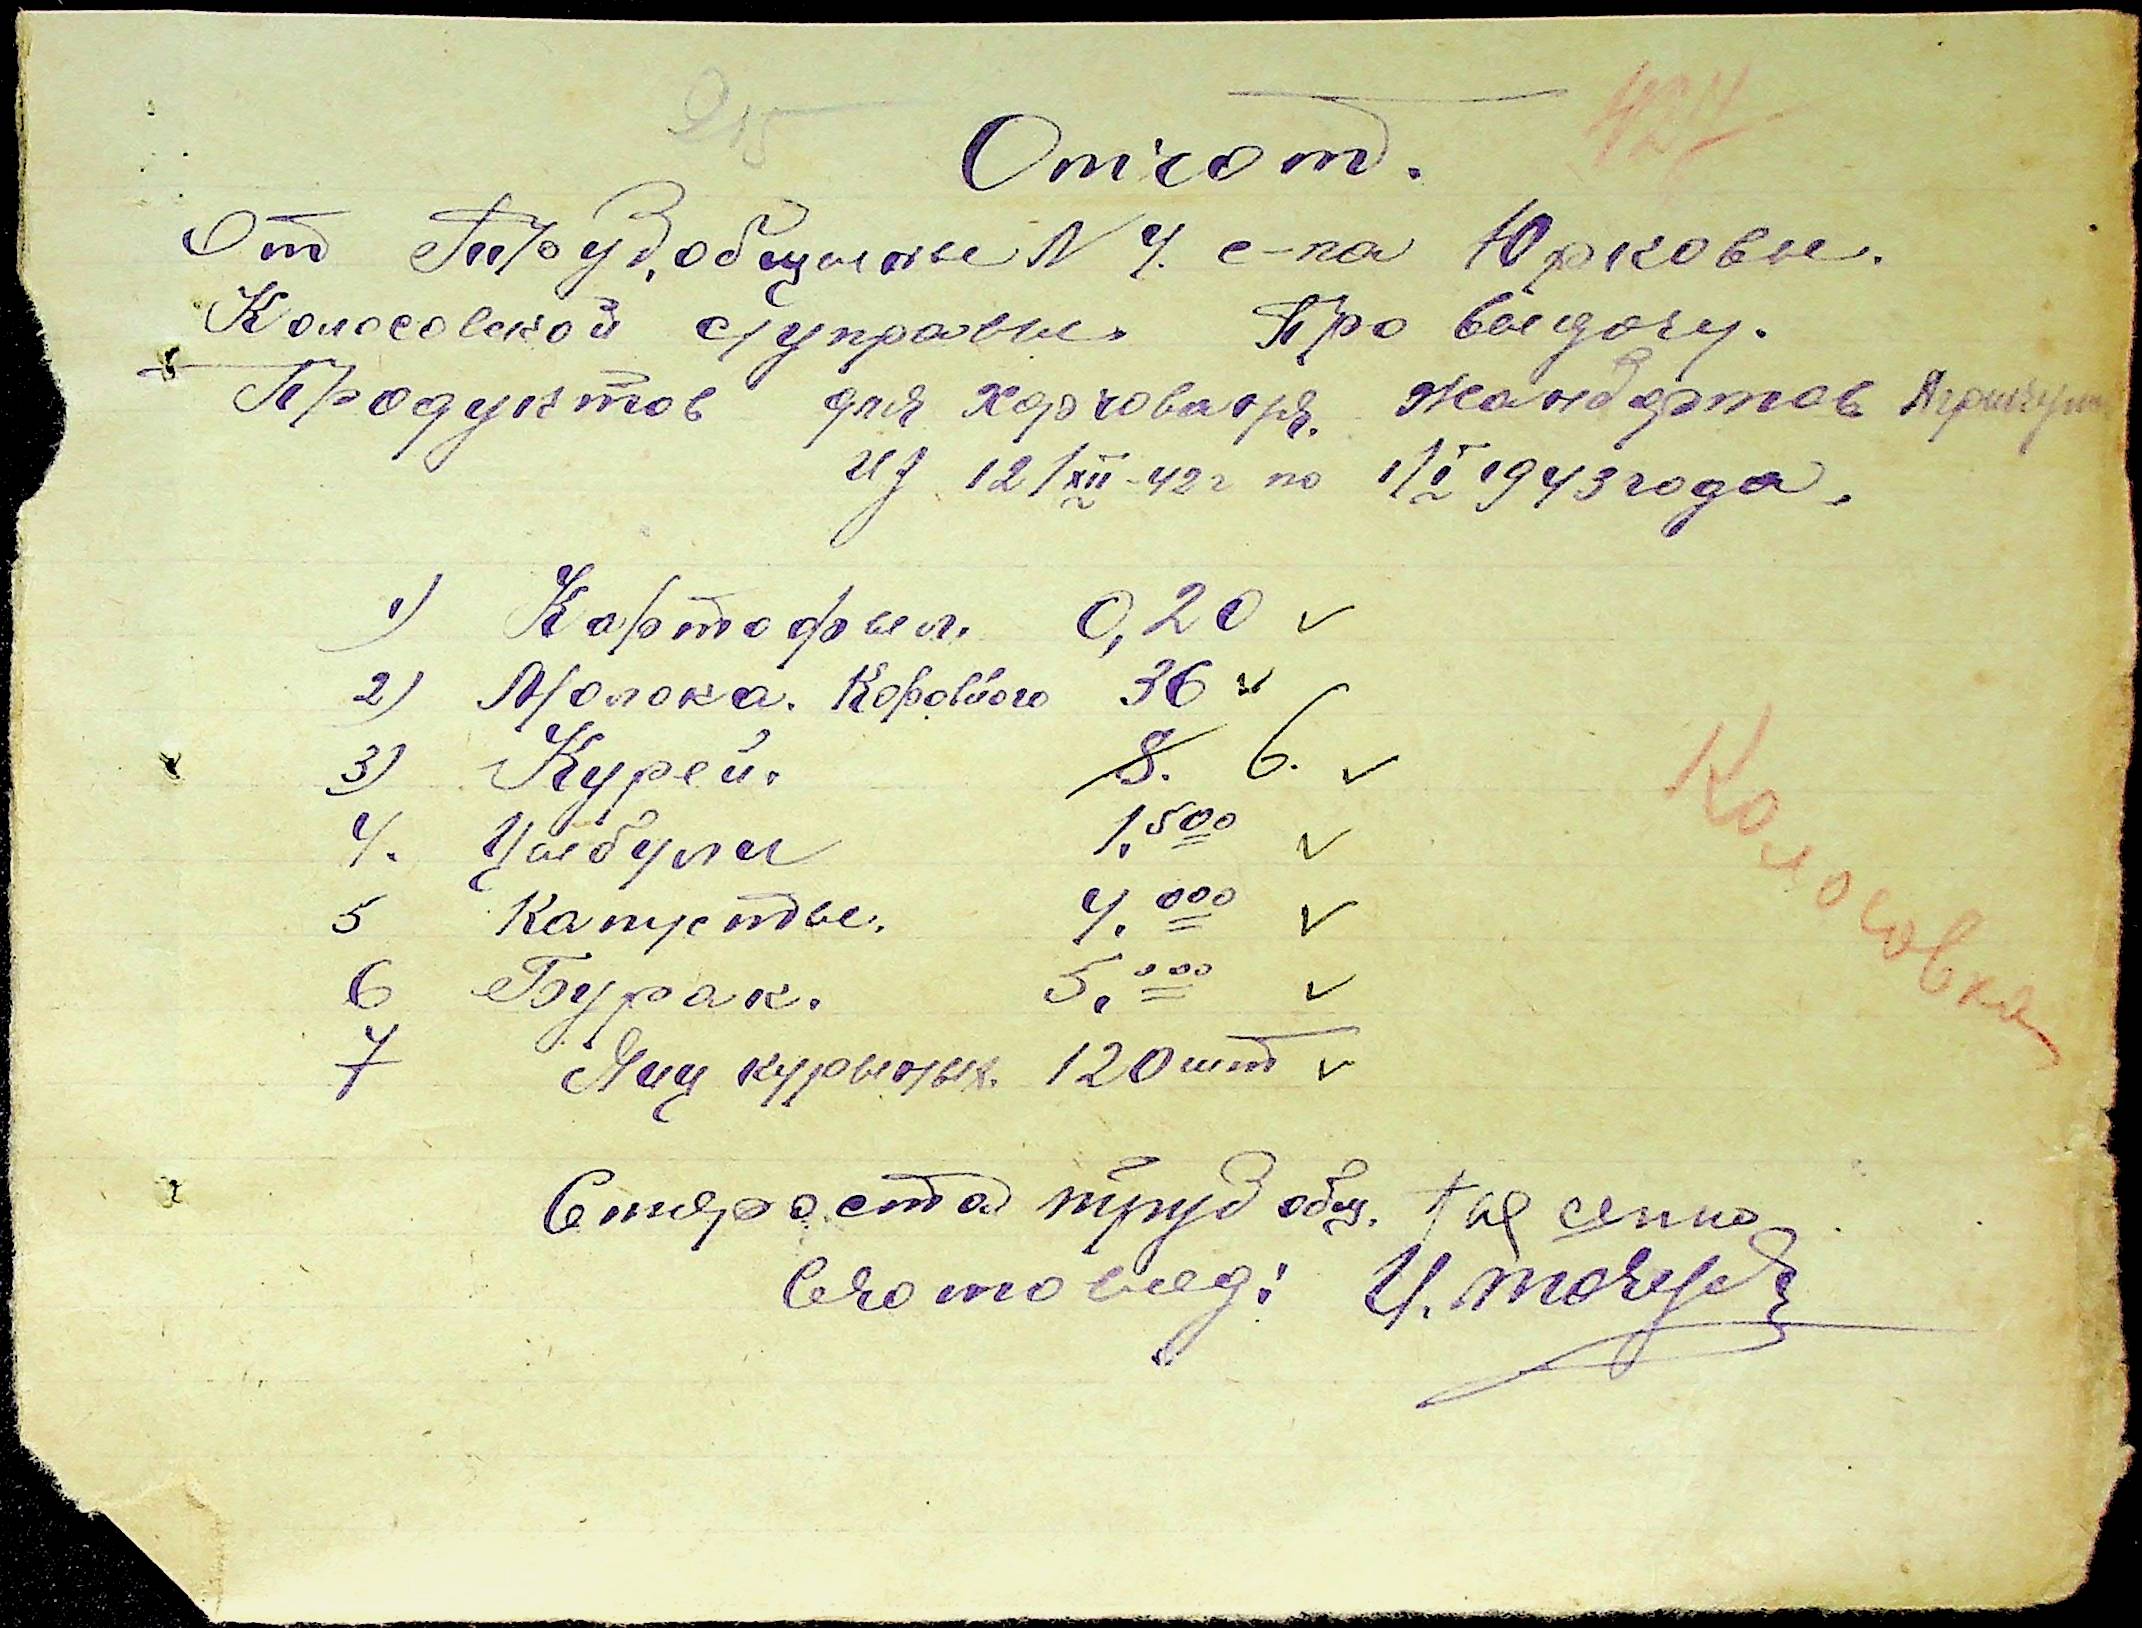 215
424
Отчот.
От Трудобщыны N 4. с-ла Юрковы.
Колосовской с/управы. Про выдочу.
Продуктов для харчованя. жандармов
из 12/XII-42 г по 1/I 1943 года.
1) Картофыл. 0,20 ✓
2) Молока. Коровйого 36 ✓
3) Курей. 8. 6. ✓
4. Цыбули 1.500 ✓
5 Капусты. 4.000 ✓
6 Бурак. 5.000 ✓
7 Яиц курыных. 120 шт ✓
Колосовка
Староста труд общ.
Счотовед: